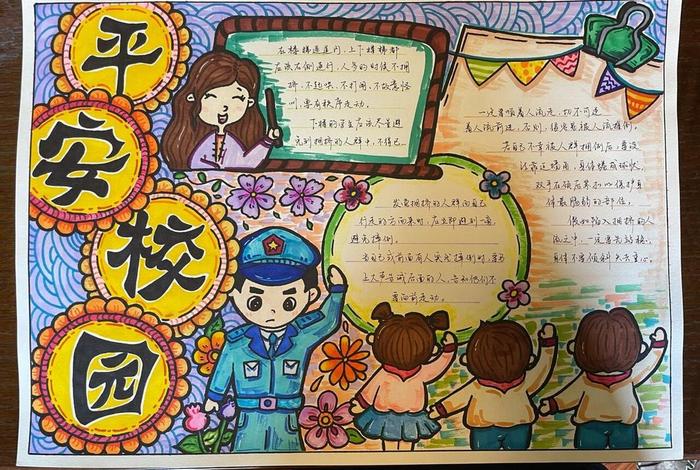 平
安
校
园
在楼梯通道内,上下楼梯都
应该右侧通行,人多的时候不拥
挤、不起哄、不打闹、不故意怪
叫,要有秩序走动。
下楼的学生应该尽量避
免到拥挤的人群中,不得已
发觉拥挤的人群向自己
行走的方向来时,应立即避到一旁
避免摔倒。
当自己或前面有人突然摔倒时,要马
上大声告诉后面的人,告知他们不
要向前走动。
一定要顺着人流走,切不可逆
着人流前进,否则,很容易被人流推倒。
若自己不幸被人群拥倒后,要设
法靠近墙角,身体蜷成球状,
双手在颈后紧扣以保护身
体最脆弱的部位。
假如陷入拥挤的人
流之中,一定要先站稳,
身体不要倾斜失去重心。